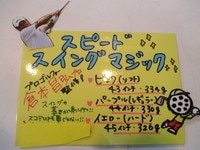 スピード
スイングマジック
プロゴルファー
倉本昌弘プロ
ピンク(ソフト)
43インチ・334g
パープル(レギュラー)
44インチ
イエロー(ハード)
45インチ・326g
スイングの